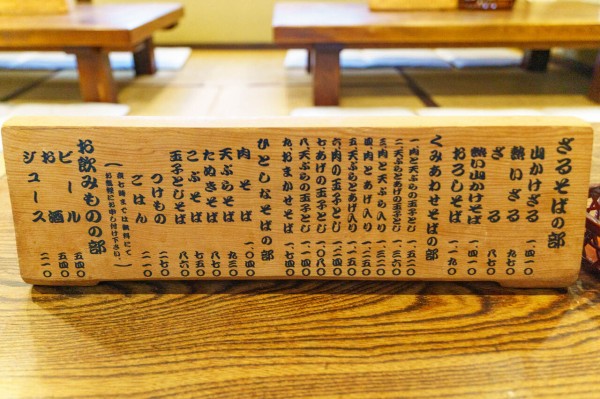 ざるそばの部
山かけざる 一、〇四〇
熱いざる 九七〇
ざる 八七〇
熱い山かけそば 一、〇四〇
おろしそば 一、一九〇
くみあわせそばの部
一 肉と天ぷらの玉子とじ 一、五二〇
二 天ぷらとあげの玉子とじ 一、三六〇
三 肉と天ぷら入り 一、三二〇
四 肉とあげ入り 一、二五〇
五 天ぷらとあげ入り 一、二五〇
六 肉の玉子とじ 一、二五〇
七 あげの玉子とじ 一、〇八〇
八 天ぷらの玉子とじ
九 おまかせそば 一、七四〇
ひとしなそばの部
肉そば 一、〇四〇
天ぷらそば 九三〇
たぬきそば 八七〇
こぶそば 七五〇
玉子とじそば 八六〇
つけもの 二二〇
ごはん 二一〇
(夜七時までは無料にて、
お気軽にお申し付け下さい。)
お飲みものの部
ビール 五四〇
お酒 五四〇
ジュース 二一〇